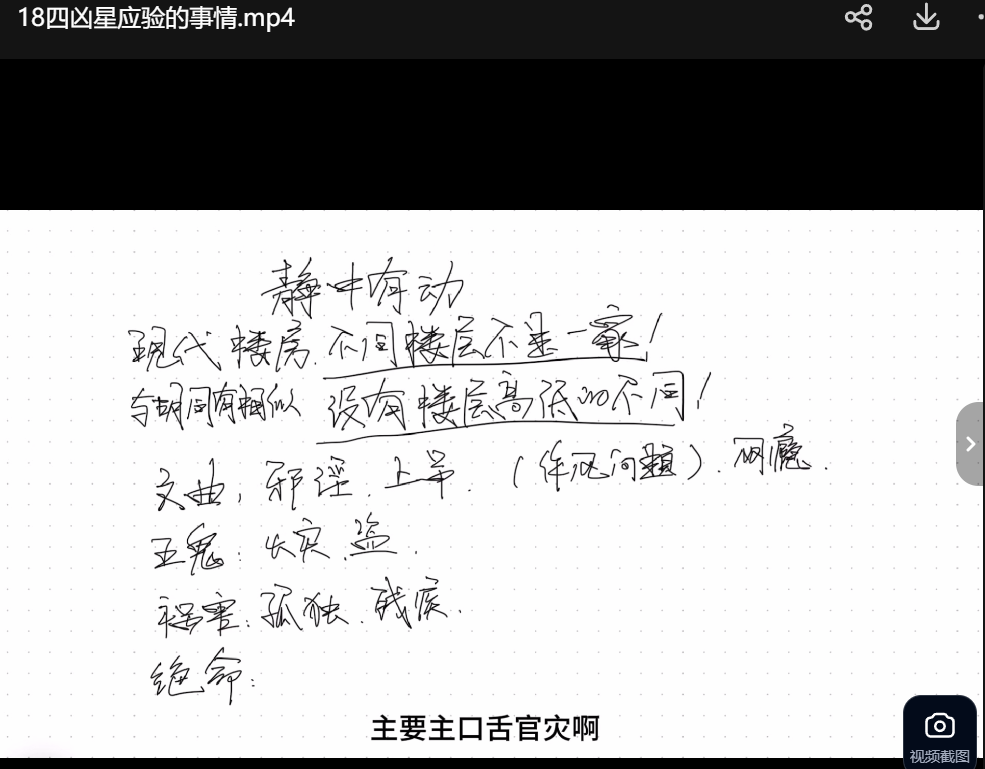 18四凶星应验的事情.mp4
静中有动
现代楼房.不同楼层不是一家!
与胡同有相似 没有楼层高低的不同!
文曲,邪淫.上吊.(作风问题).网瘾.
五鬼:火灾.盗.
祸害:孤独.残疾.
绝命:
主要主口舌官灾啊
视频截图